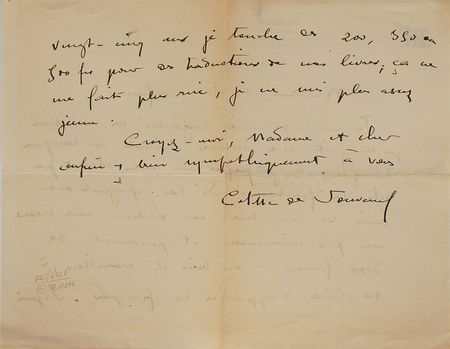 vingt-cinq ans je touche des 200, 350 ou
500 frs pour des traductions de mes livres, ça ne
me fait plus rire, je ne suis plus assez
jeune.
Croyez-moi, Madame et cher
confrère, bien sympathiquement à vous
Colette de Jouvenel